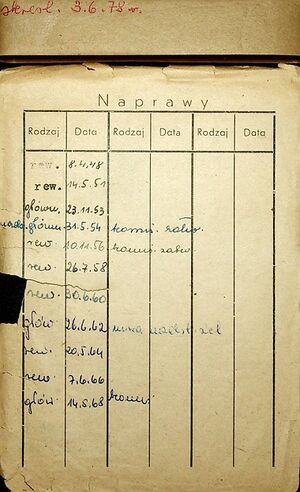 skresl. 3.6.78 r.
Naprawy
Rodzaj Data Rodzaj Data Rodzaj Data
rew. 8.4.48
rew. 14.5.51
główn. 23.11.53
główn. 31.5.54
rew. 10.11.56
rew. 26.7.58
rew. 30.6.60
głów. 26.6.62
rew. 20.5.64
rew. 7.6.66
głów. 14.5.68